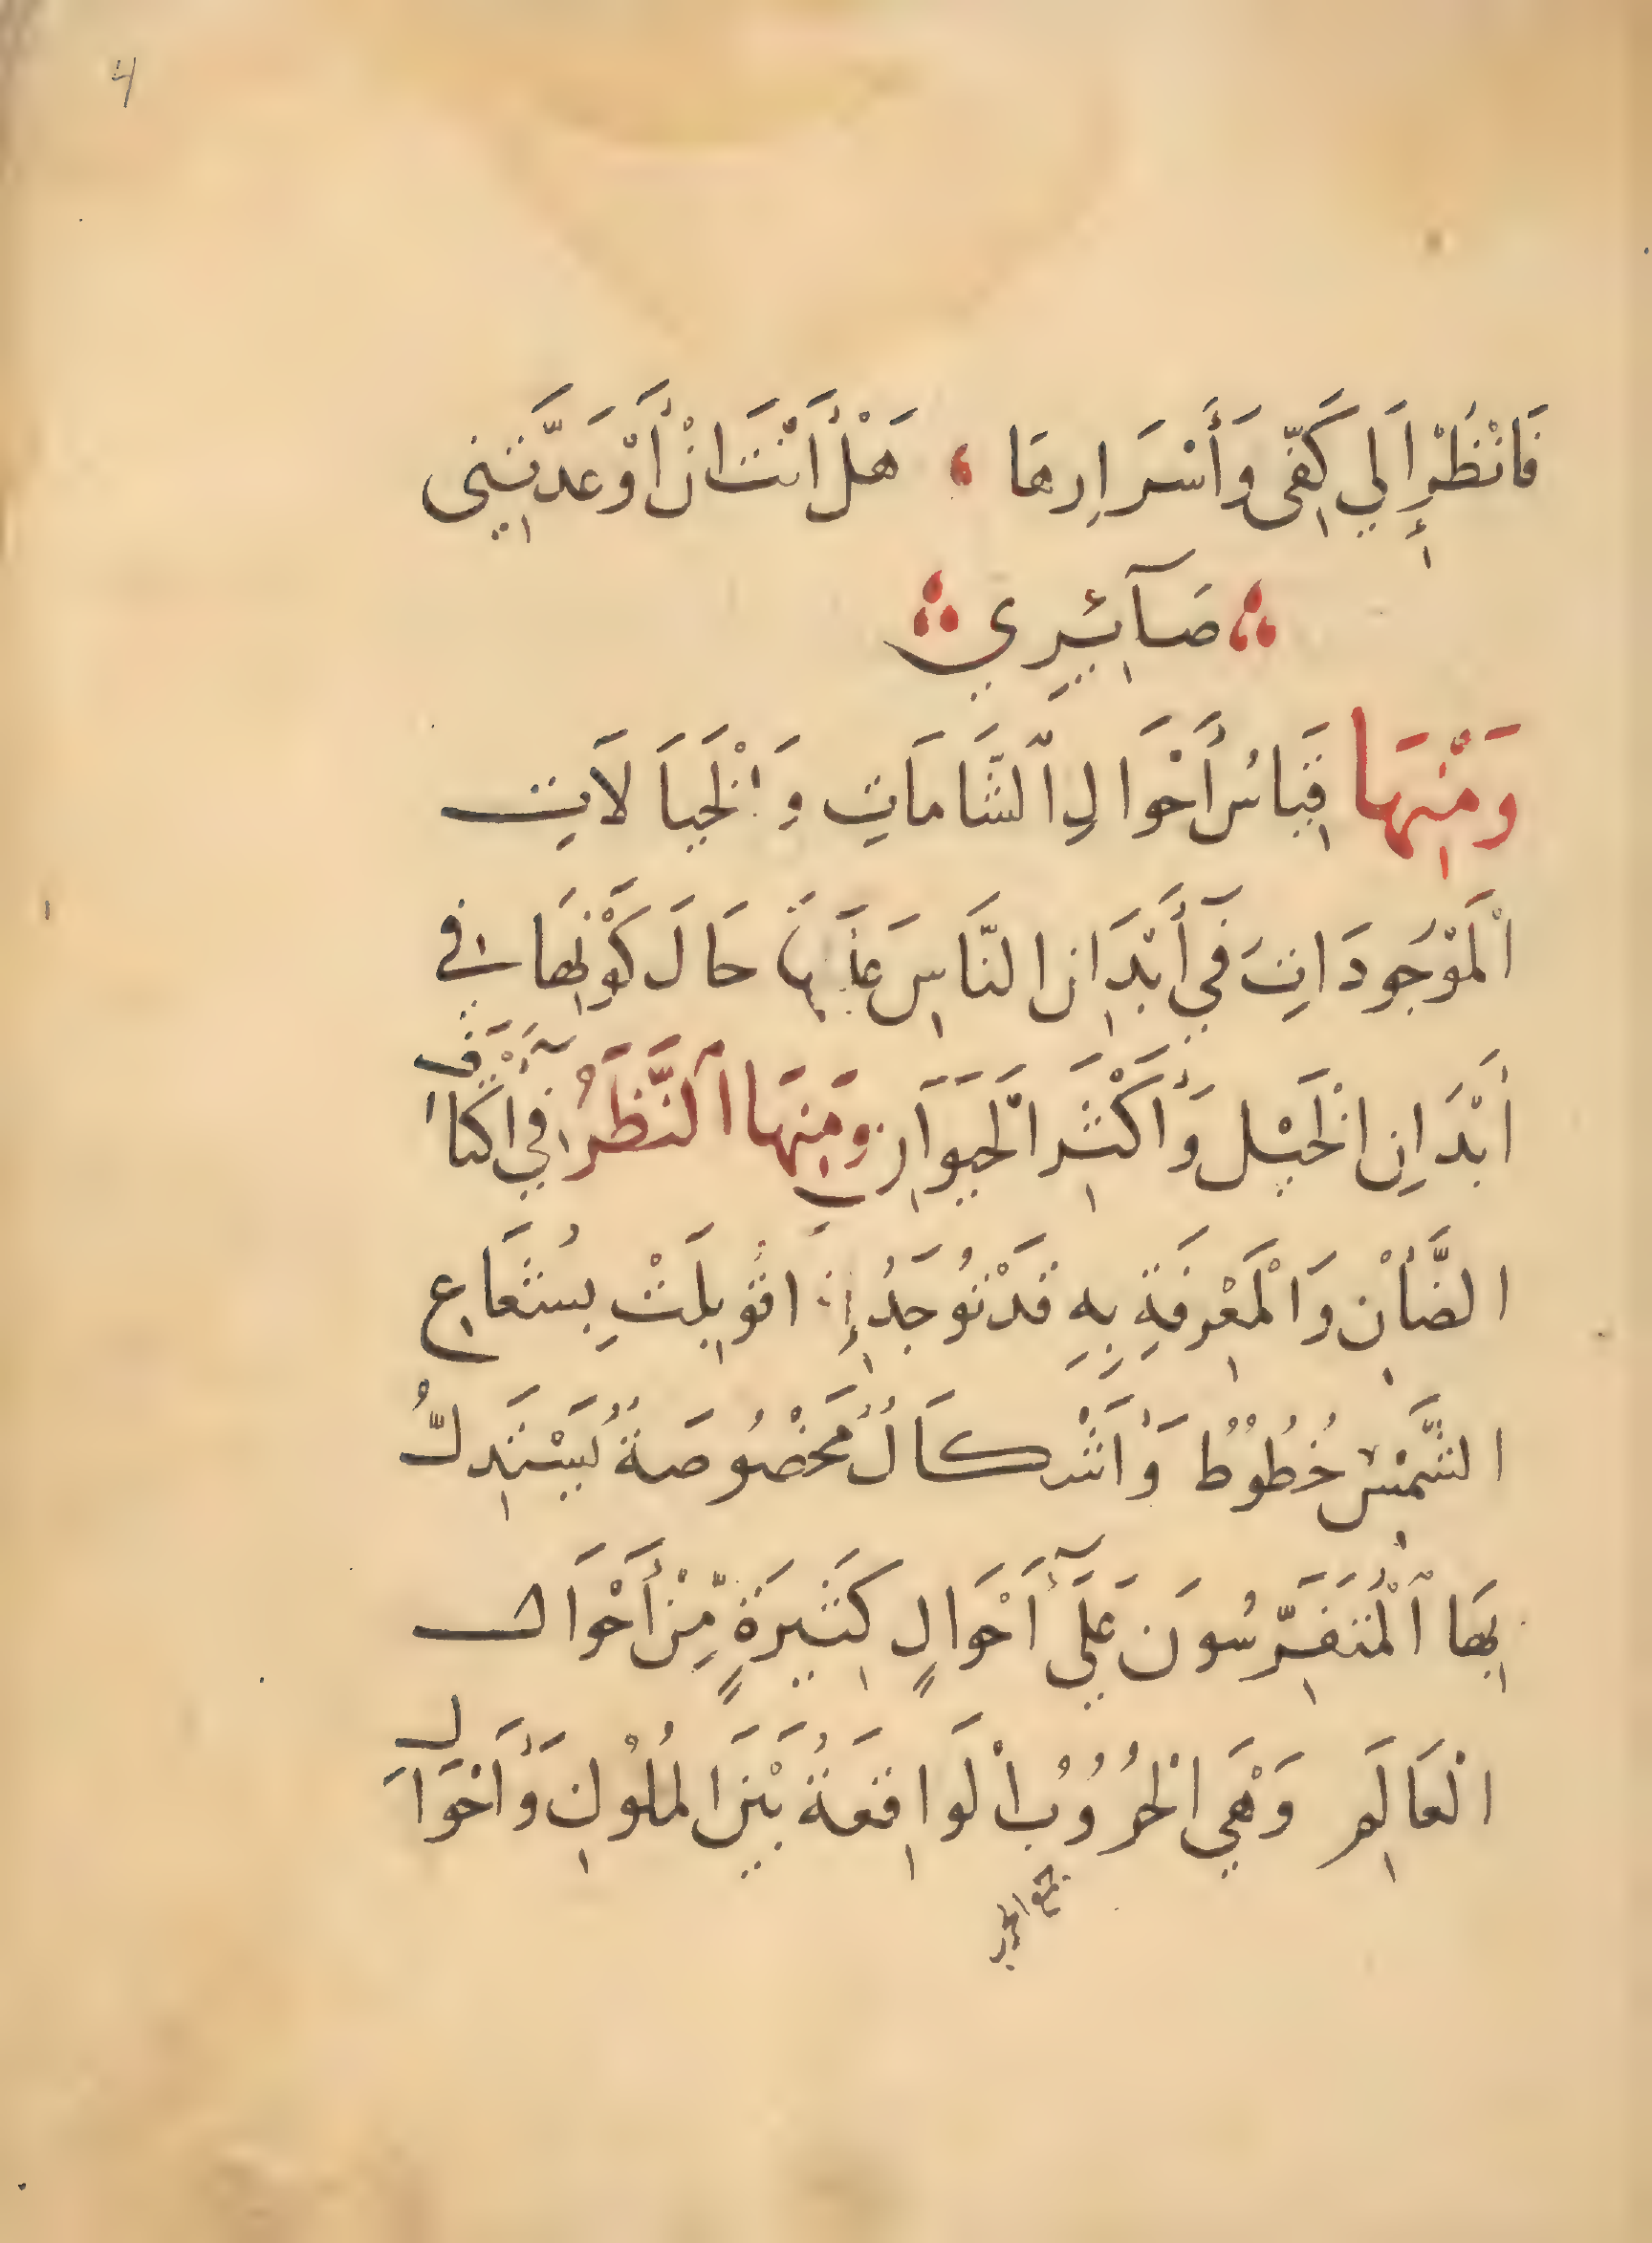 4
فَانْظُرْ إِلَي كَفِّى وَأَسْرَارِهَا ، هَلْ أَنْتَ انْ أَوْعَدتَّنِنِى
صَآئِرِي
وَمِنْهَا قِيَاسُ أَحْوَالِ الشَّامَاتِ وَالْخَيَالَاتِ
الْمَوْجُودَاتِ فِي أَبْدَانِ النَّاسِ عَلَي حَالَ كَوْنِهَا فِى
أَبْدَانِ الْخَيْلِ وَأَكْثَرِ الْحَيَوَانِ وَمِنْهَا النَّظَرُ فِي أَكْتَافِ
الضَّأْنِ وَالْمَعْرِفَةِ بِهِ قَدْ تُوجَدُ إِذَا قُوبِلَتْ بِشُعَاعِ
الشَّمْسِ خُطُوطٌ وَأَشْكَالٌ مَخْصُوصَةٌ يَسْتَدِلُّ
بِهَا الْمُتَفَرِّسُونَ عَلَي أَحْوَالٍ كَثِيرَةٍ مِّنْ أَحْوَالِ
الْعَالَمِ وَهْيَ الْحُرُوبُ الْوَاقِعَةُ بَيْنَ الْمُلُوكِ وَأَحْوَالَ